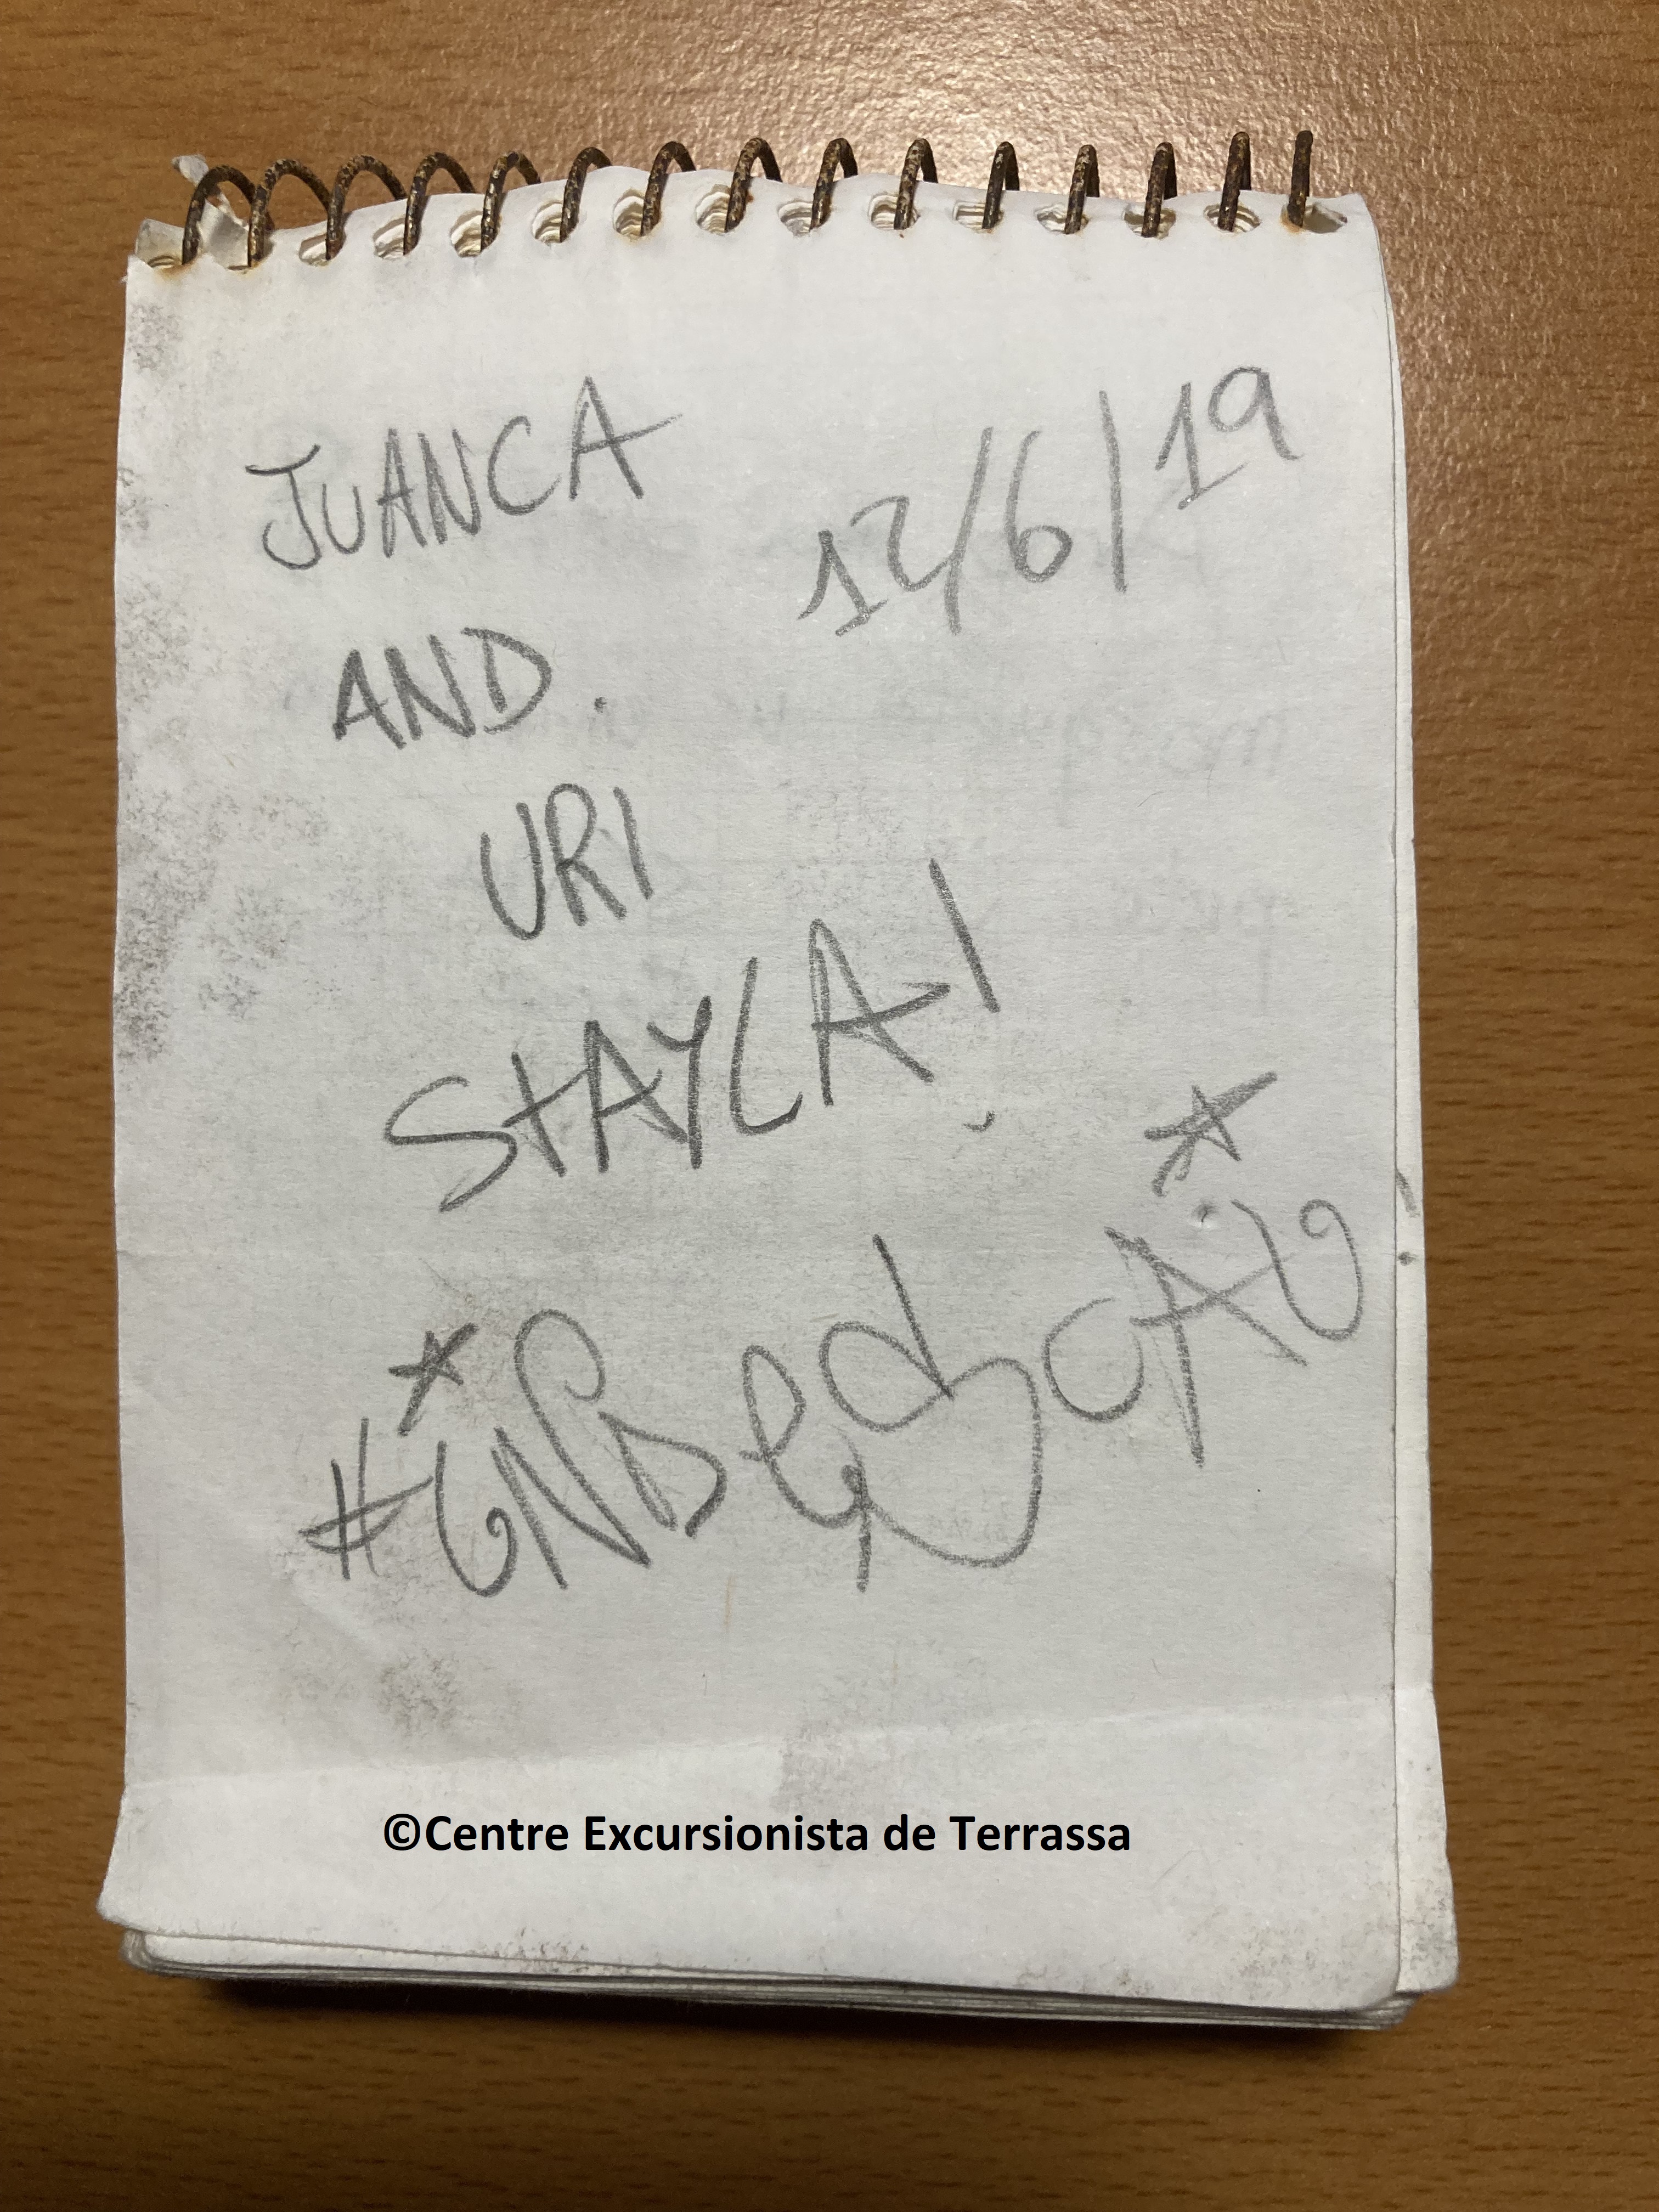 JUANCA
12/6/19
AND.
URI
STAYLA!
©Centre Excursionista de Terrassa